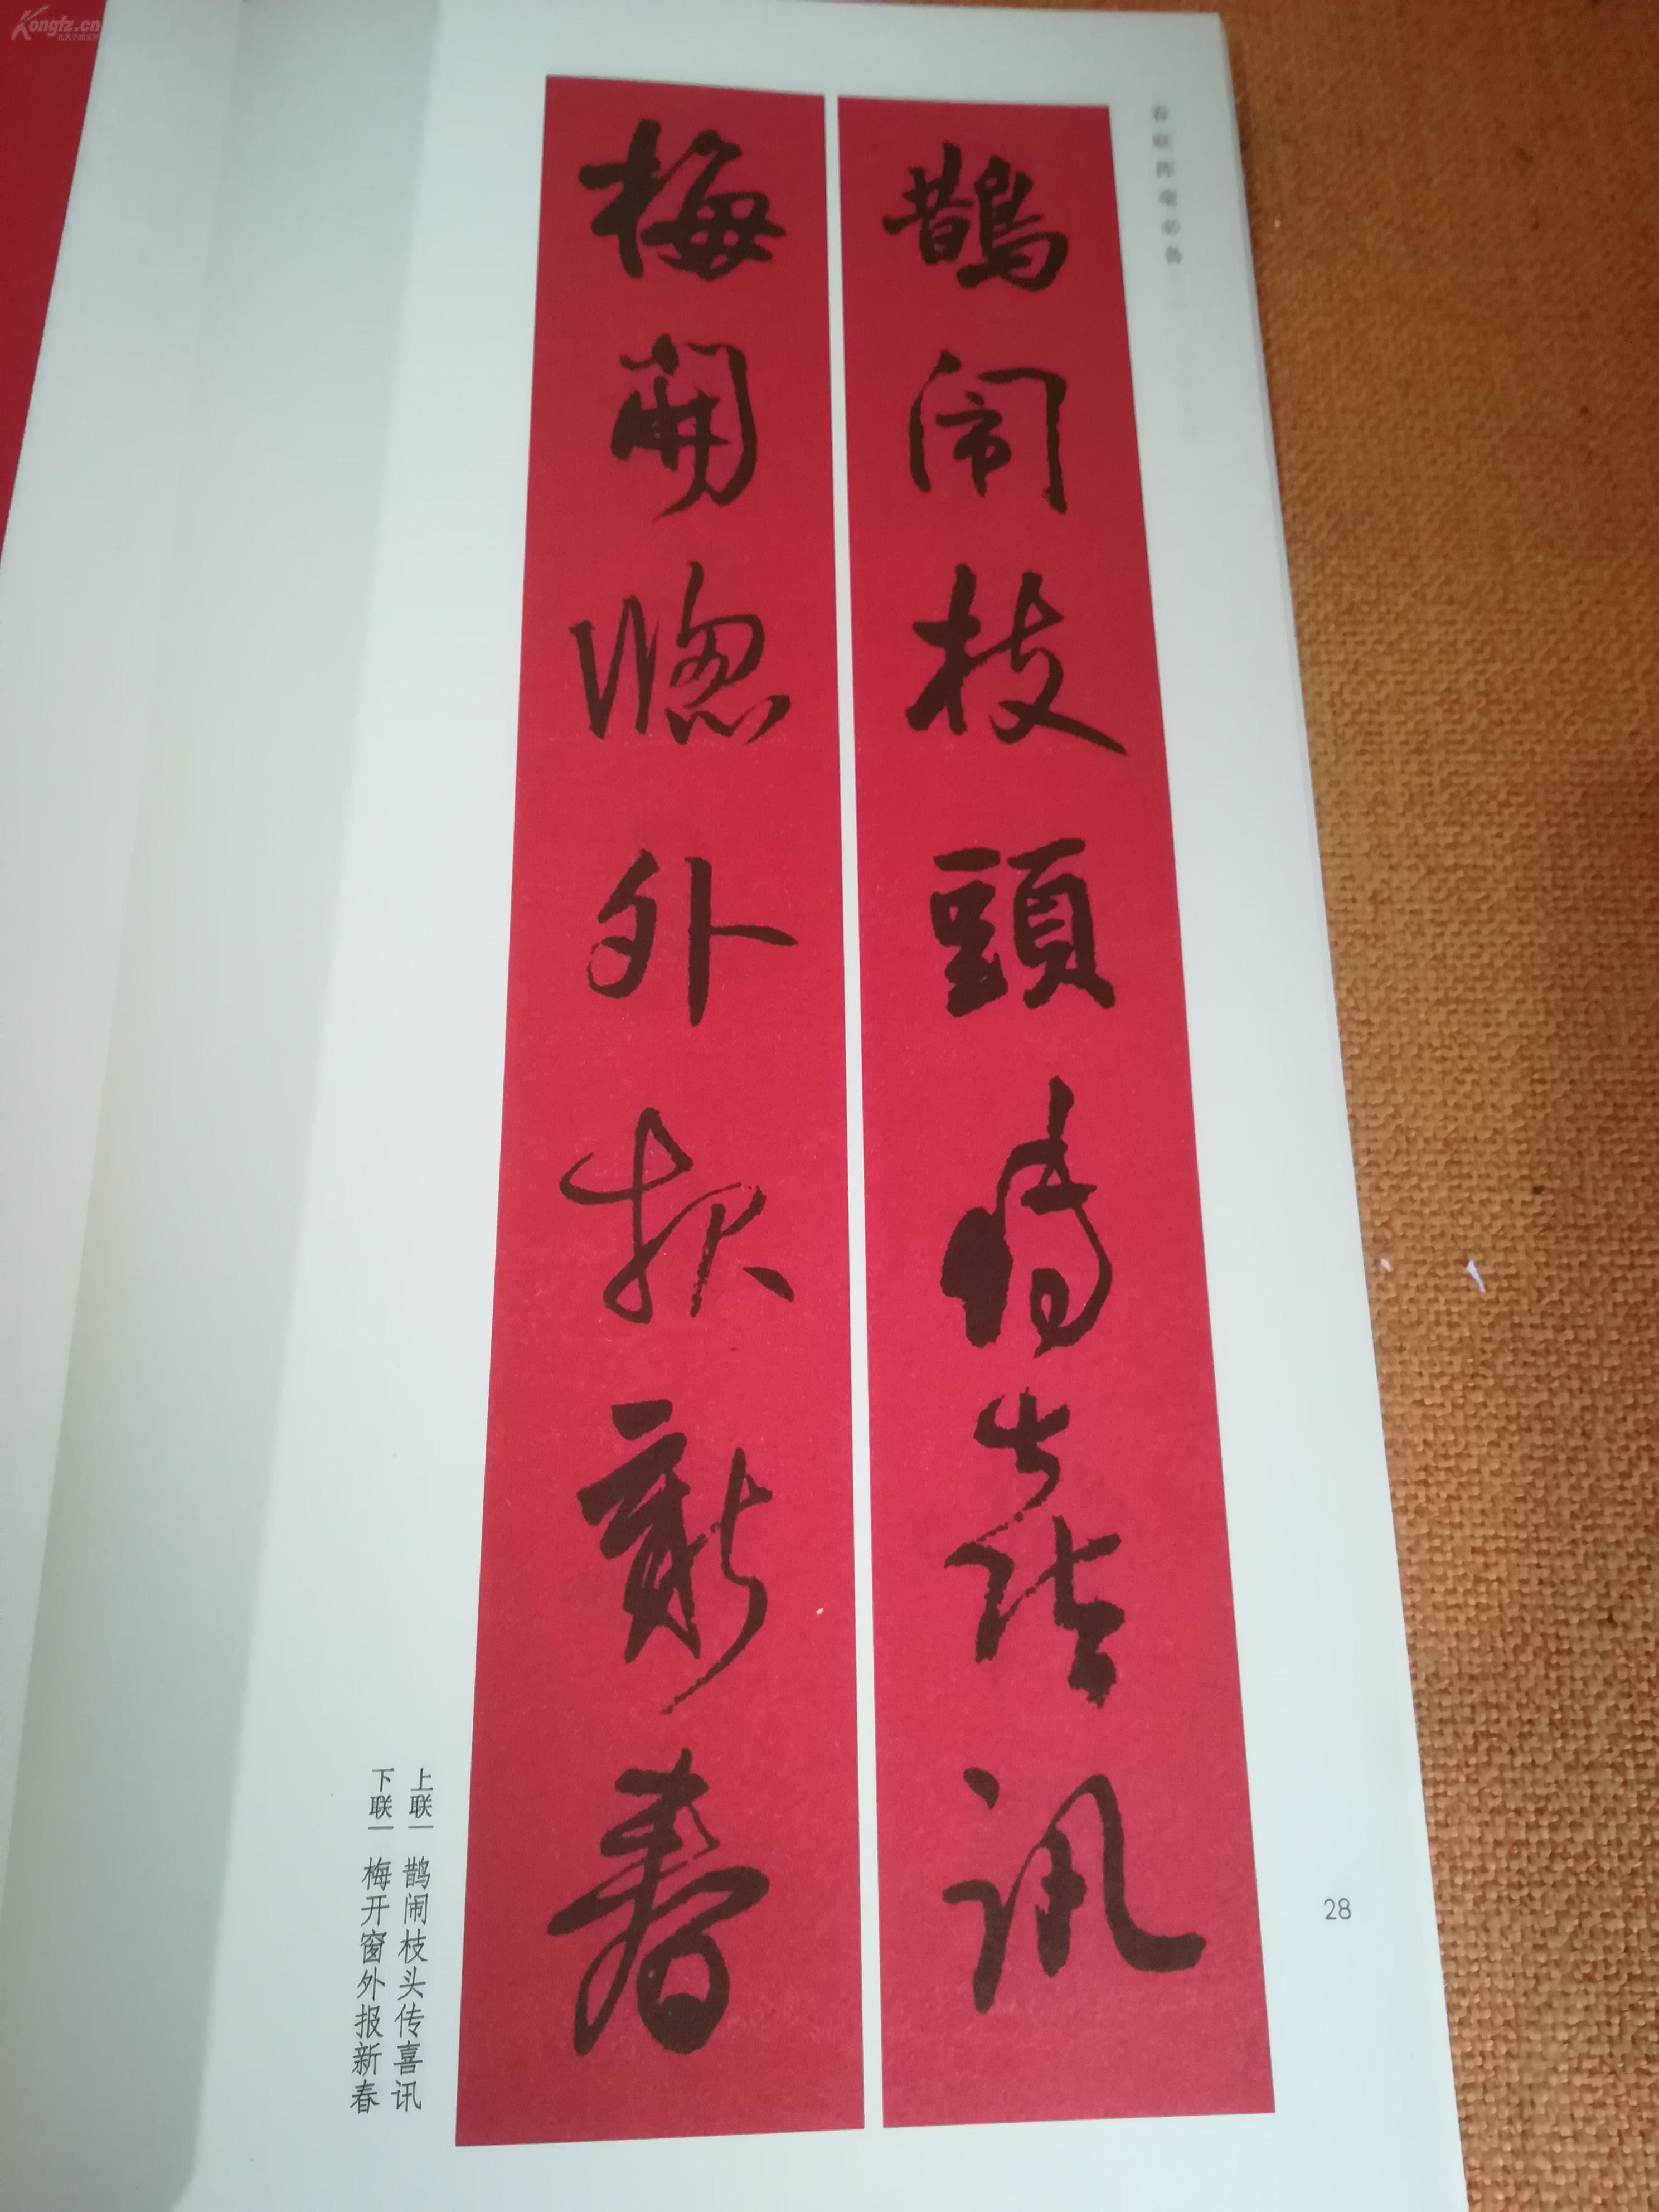 春联挥毫必备
鹊闹枝頭傳喜訊
梅開窻外报新春
上联— 鹊闹枝头传喜讯
下联— 梅开窗外报新春
28
Kongfz.cn